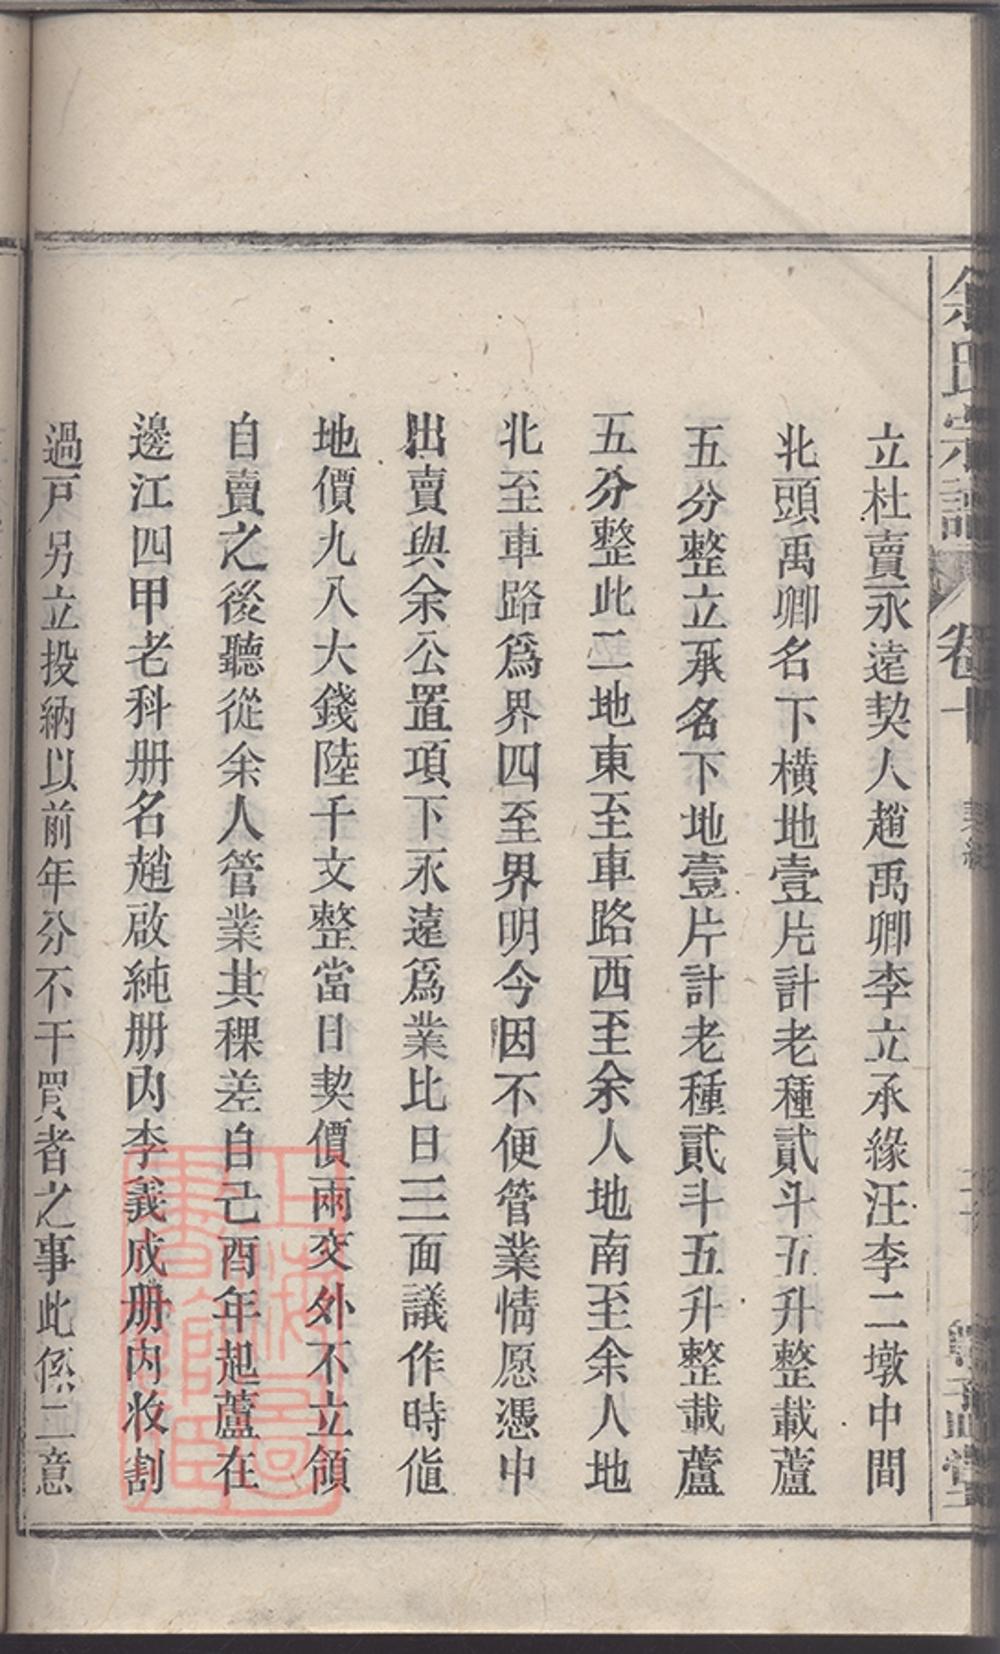 余氏宗譜
卷十
契紙
立杜賣永遠契人趙禹卿李立承緣汪李二墩中間
北頭禹卿名下橫地壹片計老種貳斗五升整載蘆
五分整立承名下地壹片計老種貳斗五升整載蘆
五分整此二地東至車路西至余人地南至余人地
北至車路爲界四至界明今因不便管業情愿憑中
出賣與余公置項下永遠爲業比日三面議作時值
地價九八大錢陸千文整當日契價兩交外不立領
自賣之後聽從余人管業其稞差自己酉年起蘆在
邊江四甲老科册名趙啟純册內李義成册內收割
過戸另立投納以前年分不干買者之事此係二意
上海圖書館藏